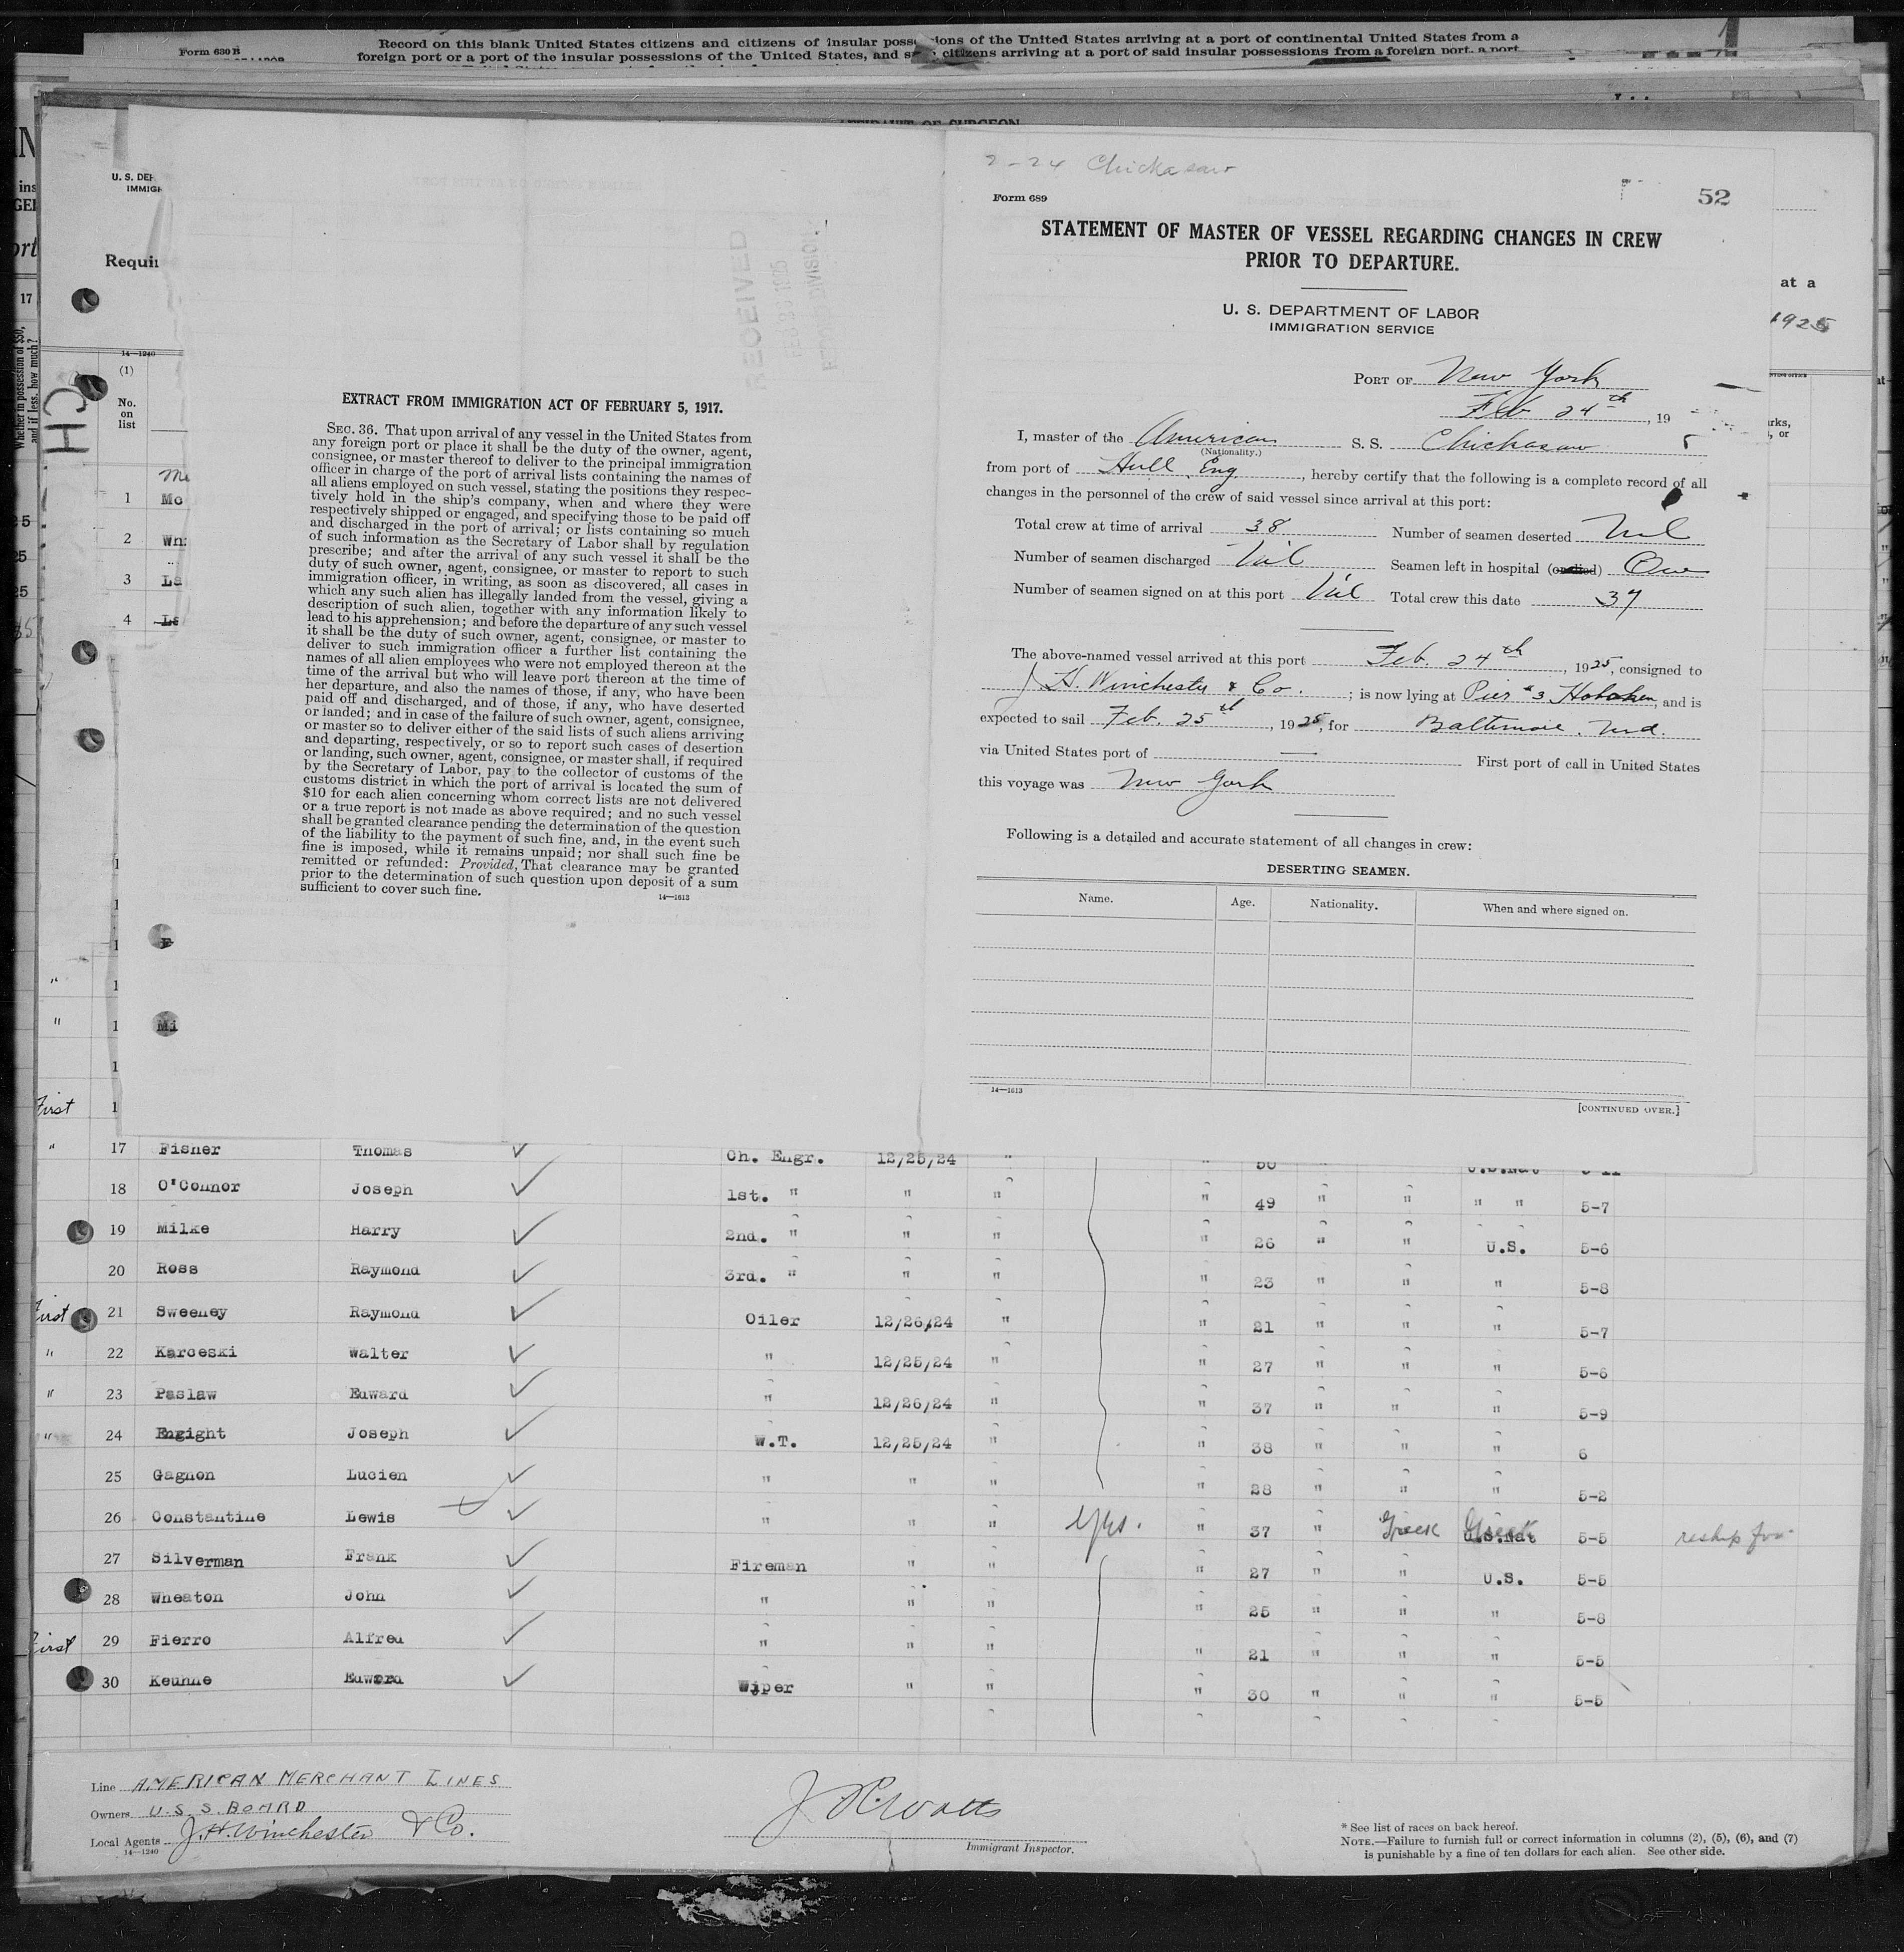 Form 630 B
Record on this blank United States citizens and citizens of insular possessions of the United States arriving at a port of continental United States from a
foreign port or a port of the insular possessions of the United States, and such citizens arriving at a port of said insular possessions from a foreign port, a port
AFFIDAVIT OF SURGEON
2-24 Chickasaw
Form 689
52
STATEMENT OF MASTER OF VESSEL REGARDING CHANGES IN CREW
PRIOR TO DEPARTURE.
U. S. DEPARTMENT OF LABOR
IMMIGRATION SERVICE
PORT OF New York
Feb 24th, 19 5
I, master of the American S. S. Chickasaw
(Nationality.)
from port of Hull Eng, hereby certify that the following is a complete record of all
changes in the personnel of the crew of said vessel since arrival at this port:
Total crew at time of arrival 38 Number of seamen deserted Nil
Number of seamen discharged Nil Seamen left in hospital (or died) One
Number of seamen signed on at this port Nil Total crew this date 37
The above-named vessel arrived at this port Feb. 24th, 1925, consigned to
J H. Winchester & Co. ; is now lying at Pier #3 Hoboken, and is
expected to sail Feb. 25th, 1925, for Baltimore. Md.
via United States port of — First port of call in United States
this voyage was New York
Following is a detailed and accurate statement of all changes in crew:
DESERTING SEAMEN.
Name. Age. Nationality. When and where signed on.
14—1613
[CONTINUED OVER.]
EXTRACT FROM IMMIGRATION ACT OF FEBRUARY 5, 1917.
SEC. 36. That upon arrival of any vessel in the United States from
any foreign port or place it shall be the duty of the owner, agent,
consignee, or master thereof to deliver to the principal immigration
officer in charge of the port of arrival lists containing the names of
all aliens employed on such vessel, stating the positions they respec-
tively hold in the ship's company, when and where they were
respectively shipped or engaged, and specifying those to be paid off
and discharged in the port of arrival; or lists containing so much
of such information as the Secretary of Labor shall by regulation
prescribe; and after the arrival of any such vessel it shall be the
duty of such owner, agent, consignee, or master to report to such
immigration officer, in writing, as soon as discovered, all cases in
which any such alien has illegally landed from the vessel, giving a
description of such alien, together with any information likely to
lead to his apprehension; and before the departure of any such vessel
it shall be the duty of such owner, agent, consignee, or master to
deliver to such immigration officer a further list containing the
names of all alien employees who were not employed thereon at the
time of the arrival but who will leave port thereon at the time of
her departure, and also the names of those, if any, who have been
paid off and discharged, and of those, if any, who have deserted
or landed; and in case of the failure of such owner, agent, consignee,
or master so to deliver either of the said lists of such aliens arriving
and departing, respectively, or so to report such cases of desertion
or landing, such owner, agent, consignee, or master shall, if required
by the Secretary of Labor, pay to the collector of customs of the
customs district in which the port of arrival is located the sum of
$10 for each alien concerning whom correct lists are not delivered
or a true report is not made as above required; and no such vessel
shall be granted clearance pending the determination of the question
of the liability to the payment of such fine, and, in the event such
fine is imposed, while it remains unpaid; nor shall such fine be
remitted or refunded: Provided, That clearance may be granted
prior to the determination of such question upon deposit of a sum
sufficient to cover such fine.
14—1613
U. S. DEP
IMMIG
Requir
14—1240
(1)
No.
on
list
1 Mc
2 Wh
3 La
4 La
at a
1925
17 Fisher Thomas Ch. Engr. 12/25/24 " " 50 " U.S.Nat 5-11
18 O'Connor Joseph 1st. " " " " 49 " " " " 5-7
19 Milke Harry 2nd. " " " " 26 " " U.S. 5-6
20 Ross Raymond 3rd. " " " " 23 " " " 5-8
First 21 Sweeney Raymond Oiler 12/26/24 " " 21 " " " 5-7
" 22 Karceski Walter " 12/25/24 " " 27 " " " 5-6
" 23 Paslaw Edward " 12/26/24 " " 37 " " " 5-9
" 24 Engight Joseph W.T. 12/25/24 " " 38 " " " 6
25 Gagnon Lucien " " " " 28 " " " 5-2
26 Constantine Lewis " " " yes. " 37 " Greek Greek U.S.Nat 5-5 reship for
27 Silverman Frank Fireman " " " 27 " " U.S. 5-5
28 Wheaton John " " " " 25 " " " 5-8
First 29 Fierro Alfred " " " " 21 " " " 5-5
30 Keuhne Edward Wiper " " " 30 " " " 5-5
Line AMERICAN MERCHANT LINES
Owners U.S.S. BOARD
Local Agents J.H. Winchester & Co.
14—1240
Immigrant Inspector.
* See list of races on back hereof.
NOTE.—Failure to furnish full or correct information in columns (2), (5), (6), and (7)
is punishable by a fine of ten dollars for each alien. See other side.